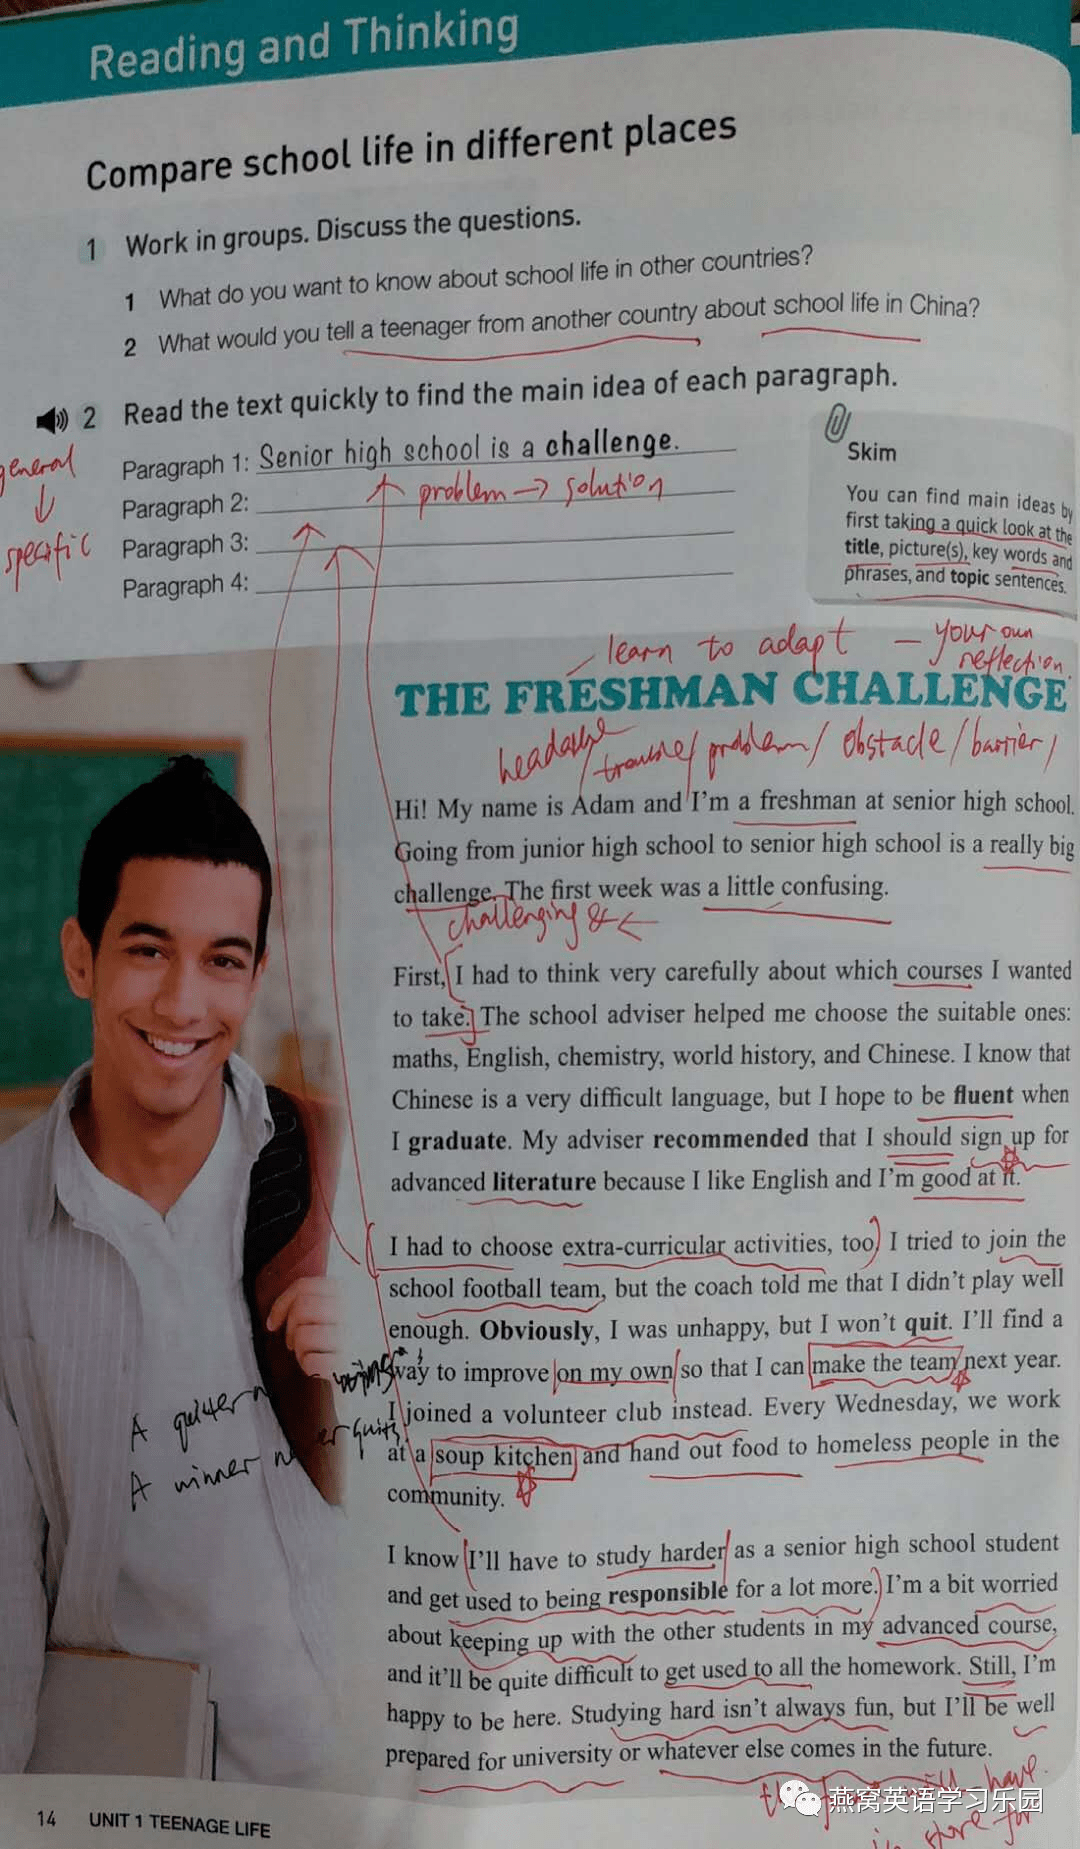 Reading and Thinking
Compare school life in different places
1 Work in groups. Discuss the questions.
1 What do you want to know about school life in other countries?
2 What would you tell a teenager from another country about school life in China?
2 Read the text quickly to find the main idea of each paragraph.
general
↓
specific
Paragraph 1: Senior high school is a challenge.
problem → solution
Paragraph 2:
Paragraph 3:
Paragraph 4:
Skim
You can find main ideas by
first taking a quick look at the
title, picture(s), key words and
phrases, and topic sentences.
learn to adapt — your own
reflection
THE FRESHMAN CHALLENGE
headache/trouble/problem/obstacle/barrier/
Hi! My name is Adam and I'm a freshman at senior high school.
Going from junior high school to senior high school is a really big
challenge. The first week was a little confusing.
challenging &
First, I had to think very carefully about which courses I wanted
to take. The school adviser helped me choose the suitable ones:
maths, English, chemistry, world history, and Chinese. I know that
Chinese is a very difficult language, but I hope to be fluent when
I graduate. My adviser recommended that I should sign up for
advanced literature because I like English and I'm good at it.
I had to choose extra-curricular activities, too. I tried to join the
school football team, but the coach told me that I didn't play well
enough. Obviously, I was unhappy, but I won't quit. I'll find a
way to improve on my own so that I can make the team next year.
I joined a volunteer club instead. Every Wednesday, we work
at a soup kitchen and hand out food to homeless people in the
community.
A quitter n
A winner never quits
I know I'll have to study harder as a senior high school student
and get used to being responsible for a lot more. I'm a bit worried
about keeping up with the other students in my advanced course,
and it'll be quite difficult to get used to all the homework. Still, I'm
happy to be here. Studying hard isn't always fun, but I'll be well
prepared for university or whatever else comes in the future.
have
in store for
燕窝英语学习乐园
14 UNIT 1 TEENAGE LIFE